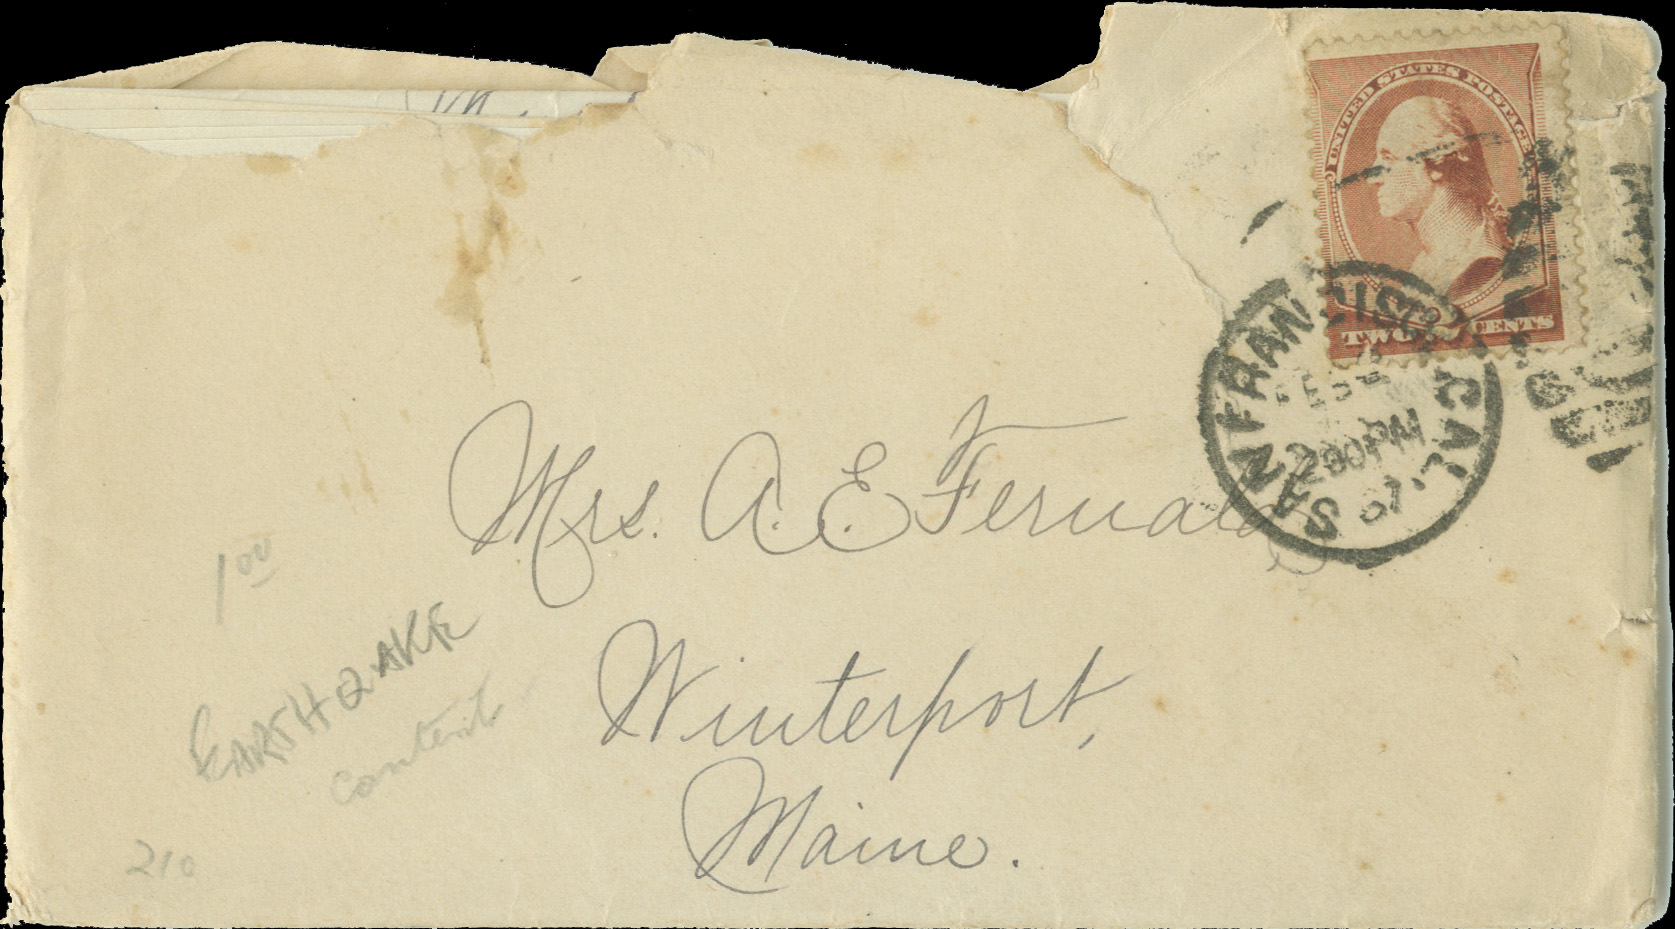 UNITED STATES POSTAGE
TWO 2 CENTS
SAN FRANCISCO CAL.
FEB
2 30 PM
87
Mrs. A. E. Fernald
Winterport,
Maine.
1 00
EARTHQAKE
content
210